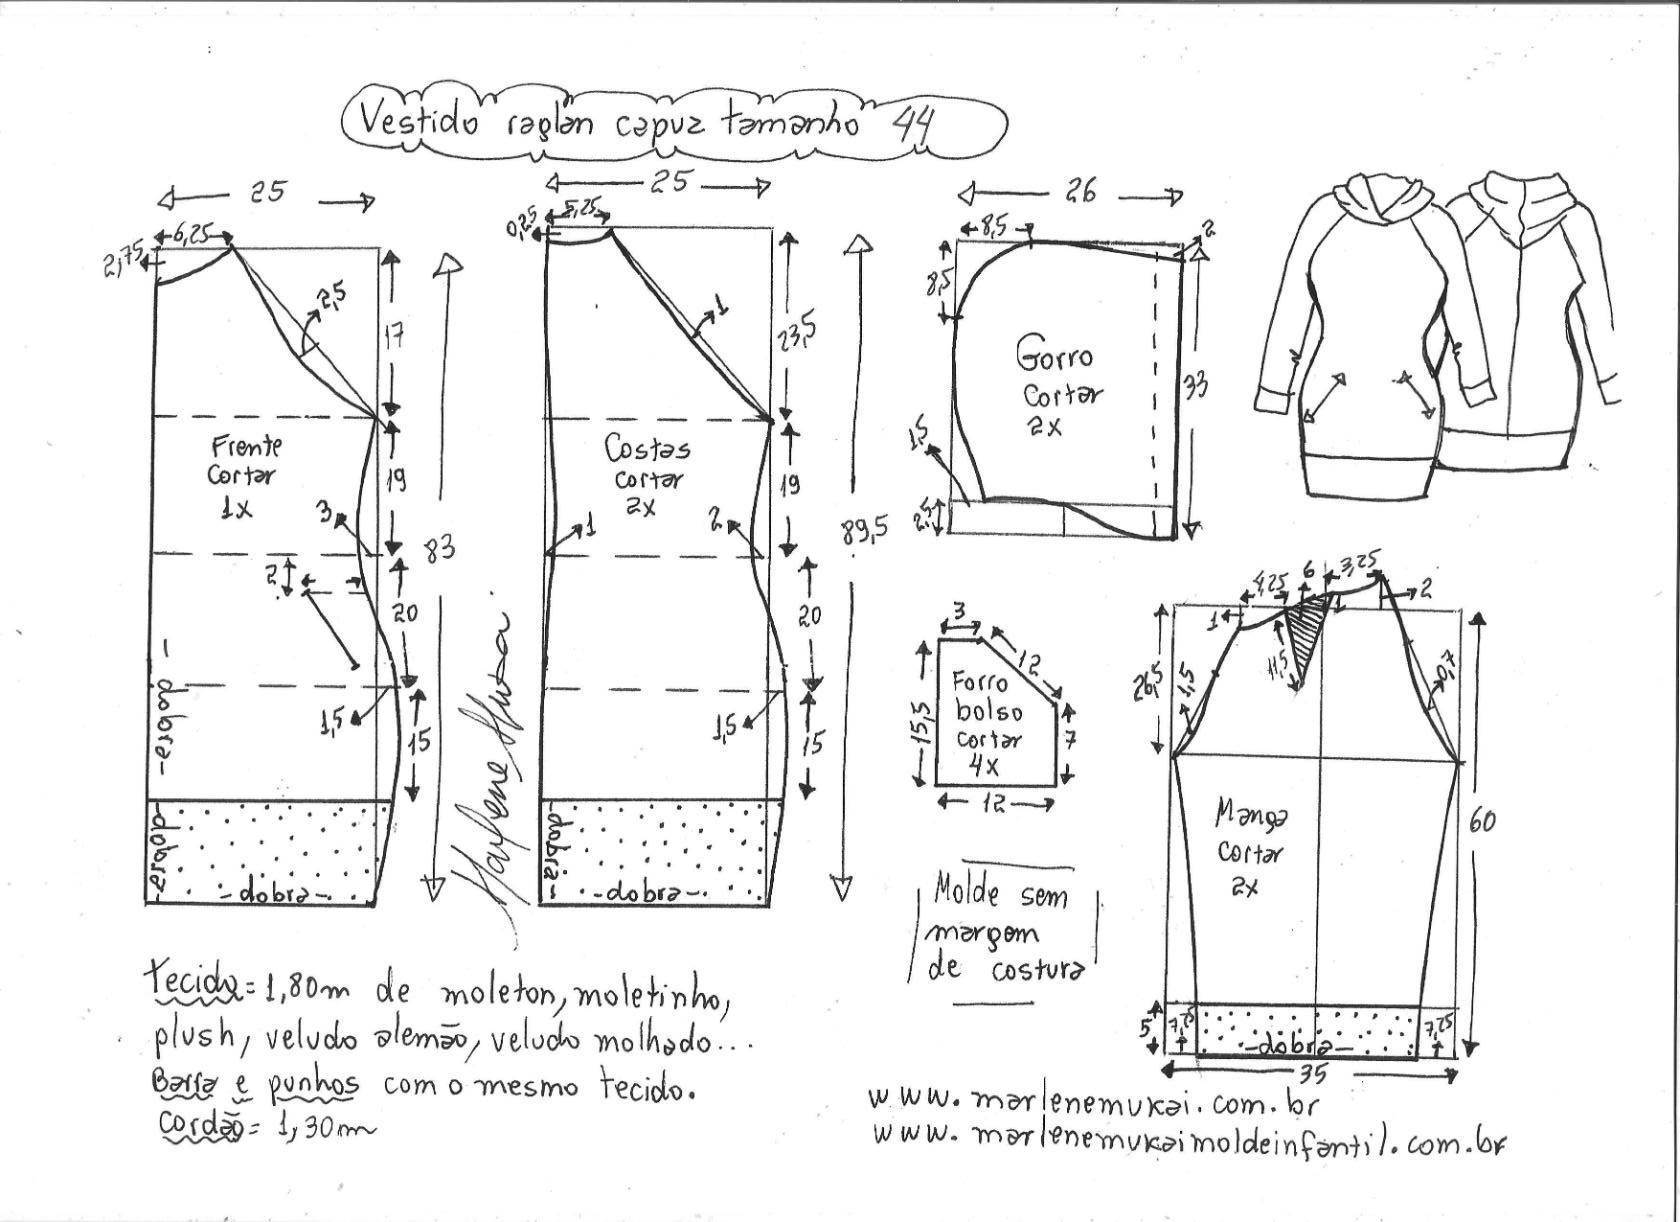 Vestido raglan capuz tamanho 44
25
6,25
2,75
2,5
17
Frente
Cortar
1x
19
3
83
2
20
1,5
15
-dobra-
-dobra-
-dobra-
25
5,25
0,25
1
23,5
Costas
cortar
2x
19
1
2
89,5
20
1,5
15
-dobra-
-dobra-
26
8,5
2
8,5
Gorro
Cortar
2x
33
1,5
2,5
3
12
Forro
bolso
cortar
4x
15,5
7
12
4,25
6
3,25
2
1
1
11,5
26,5
1,5
0,7
Manga
cortar
2x
60
5
7,25
7,25
-dobra-
35
Molde sem
margem
de costura
Tecido= 1,80m de moleton, moletinho,
plush, veludo alemão, veludo molhado...
Barra e punhos com o mesmo tecido.
Cordão= 1,30m
www.marlenemukai.com.br
www.marlenemukaimoldeinfantil.com.br